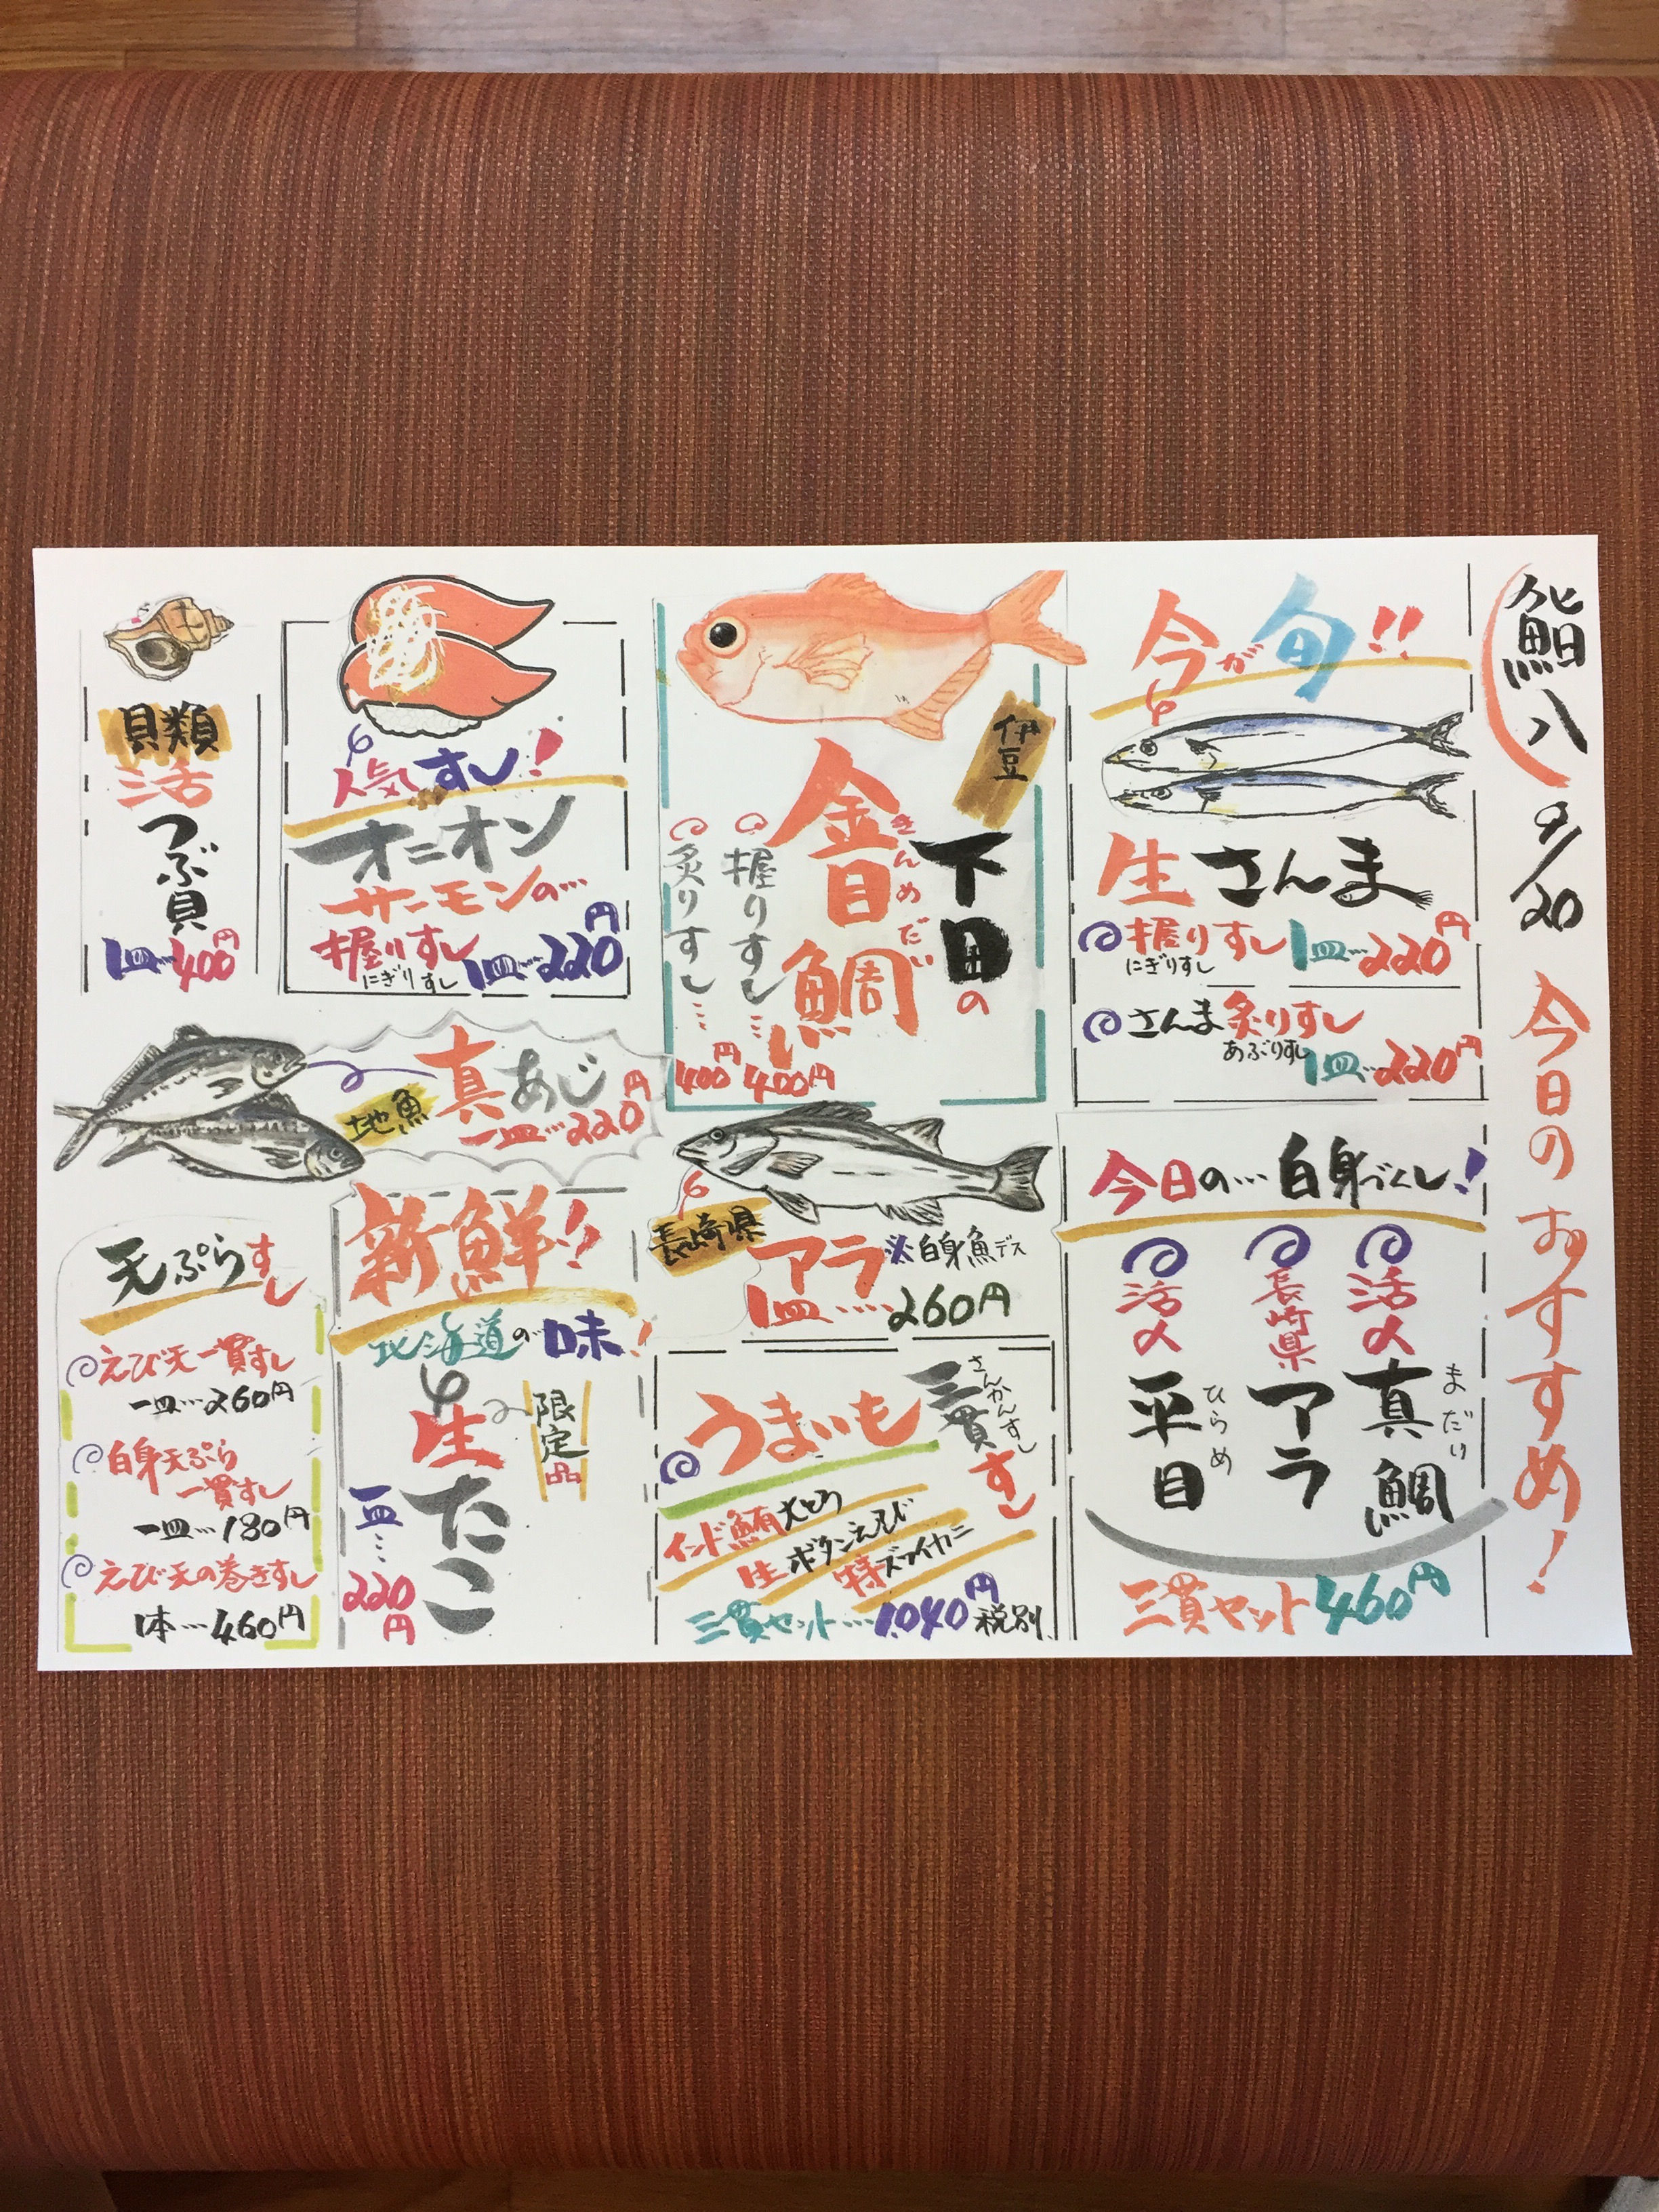 鮨八
9/20
今日のおすすめ!
今が旬!!
生さんま
握りすし 1皿…220円
にぎりすし
さんま炙りすし
あぶりすし
1皿…220円
今日の…白身づくし!
活〆 真鯛
まだい
長崎県 アラ
活〆 平目
ひらめ
三貫セット460円
伊豆
下田の
金目鯛
きんめだい
握りすし…400円
炙りすし…400円
長崎県
アラ ※白身魚デス
1皿……260円
三貫すし
さんかんすし
うまいも
インド鮪大とろ
生ボタンえび
特ズワイカニ
三貫セット…1,040円税別
人気すし!
オニオン
サーモンの…
握りすし 1皿…220円
にぎりすし
貝類
活
つぶ貝
1皿…400円
地魚
真あじ
一皿…220円
新鮮!!
北海道の味!
限定品
生たこ
一皿…220円
天ぷらすし
えび天一貫すし
一皿…260円
白身天ぷら
一貫すし
一皿…180円
えび天の巻きすし
1本…460円